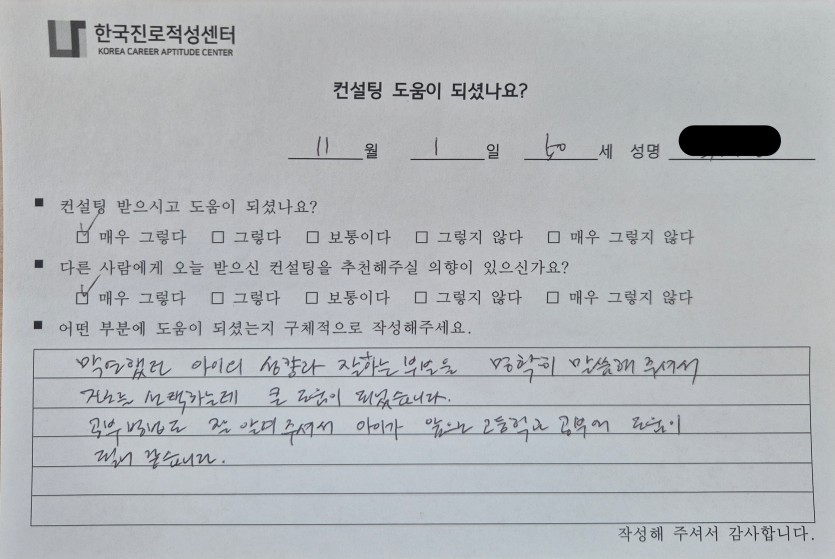 한국진로적성센터
KOREA CAREER APTITUDE CENTER
컨설팅 도움이 되셨나요?
11 월 1 일 50 세 성명
■ 컨설팅 받으시고 도움이 되셨나요?
☑ 매우 그렇다 □ 그렇다 □ 보통이다 □ 그렇지 않다 □ 매우 그렇지 않다
■ 다른 사람에게 오늘 받으신 컨설팅을 추천해주실 의향이 있으신가요?
☑ 매우 그렇다 □ 그렇다 □ 보통이다 □ 그렇지 않다 □ 매우 그렇지 않다
■ 어떤 부분에 도움이 되셨는지 구체적으로 작성해주세요.
막연했던 아이의 성향과 잘하는 부분을 명확히 말씀해 주셔서
진로 선택하는데 큰 도움이 되었습니다.
공부 방법도 잘 알려 주셔서 아이가 앞으로 고등학교 공부에 도움이
될거 같습니다.
작성해 주셔서 감사합니다.